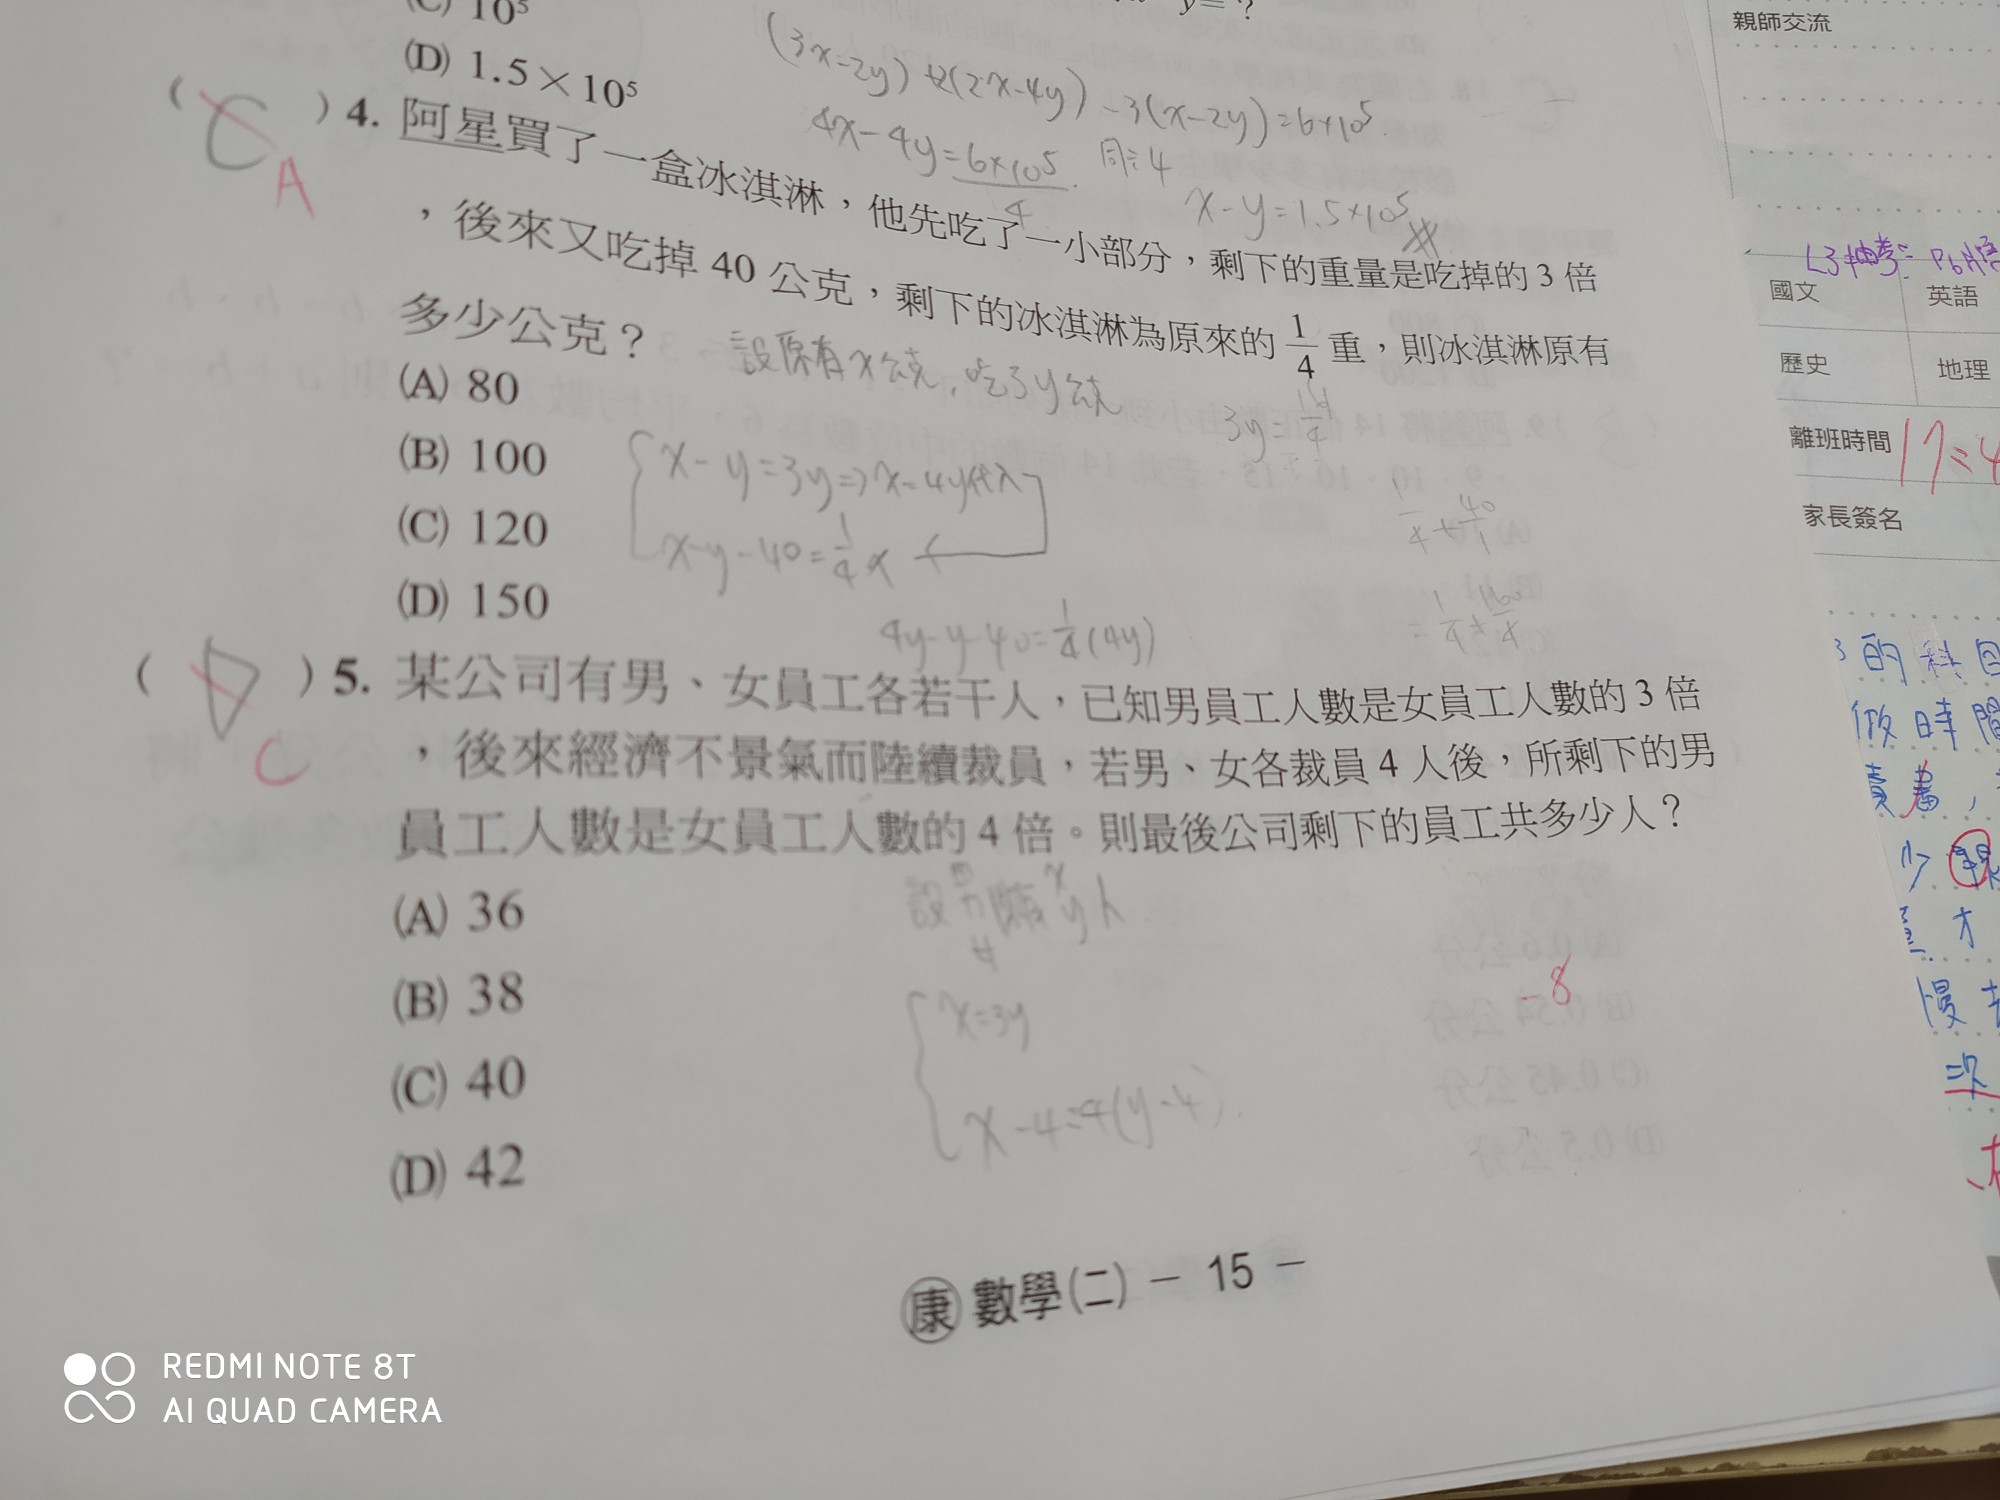 (C) 10⁵
y=?
(D) 1.5×10⁵
(3x-2y)+2(2x-4y)-3(x-2y)=6×10⁵
4x-4y=6×10⁵ 同÷4
4
x-y=1.5×10⁵
( C )4. 阿星買了一盒冰淇淋，他先吃了一小部分，剩下的重量是吃掉的 3 倍
A
，後來又吃掉 40 公克，剩下的冰淇淋為原來的 1/4 重，則冰淇淋原有
多少公克？
設原有x公克，吃了y公克
(A) 80
(B) 100
(C) 120
(D) 150
x-y=3y⇒x=4y代入
x-y-40=1/4x
4y-y-40=1/4(4y)
( D )5. 某公司有男、女員工各若干人，已知男員工人數是女員工人數的 3 倍
C
，後來經濟不景氣而陸續裁員，若男、女各裁員 4 人後，所剩下的男
員工人數是女員工人數的 4 倍。則最後公司剩下的員工共多少人？
(A) 36
(B) 38
(C) 40
(D) 42
x=3y
x-4=4(y-4)
-8
康 數學(二) － 15 －
親師交流
國文 英語
歷史 地理
離班時間 17:4
家長簽名
的科回
做時間
REDMI NOTE 8T
AI QUAD CAMERA